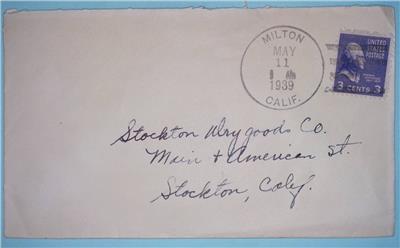 MILTON
MAY
11
1939
CALIF.
UNITED STATES
POSTAGE
3 CENTS 3
Stockton Drygoods Co.
Main & American St.
Stockton, Calif.